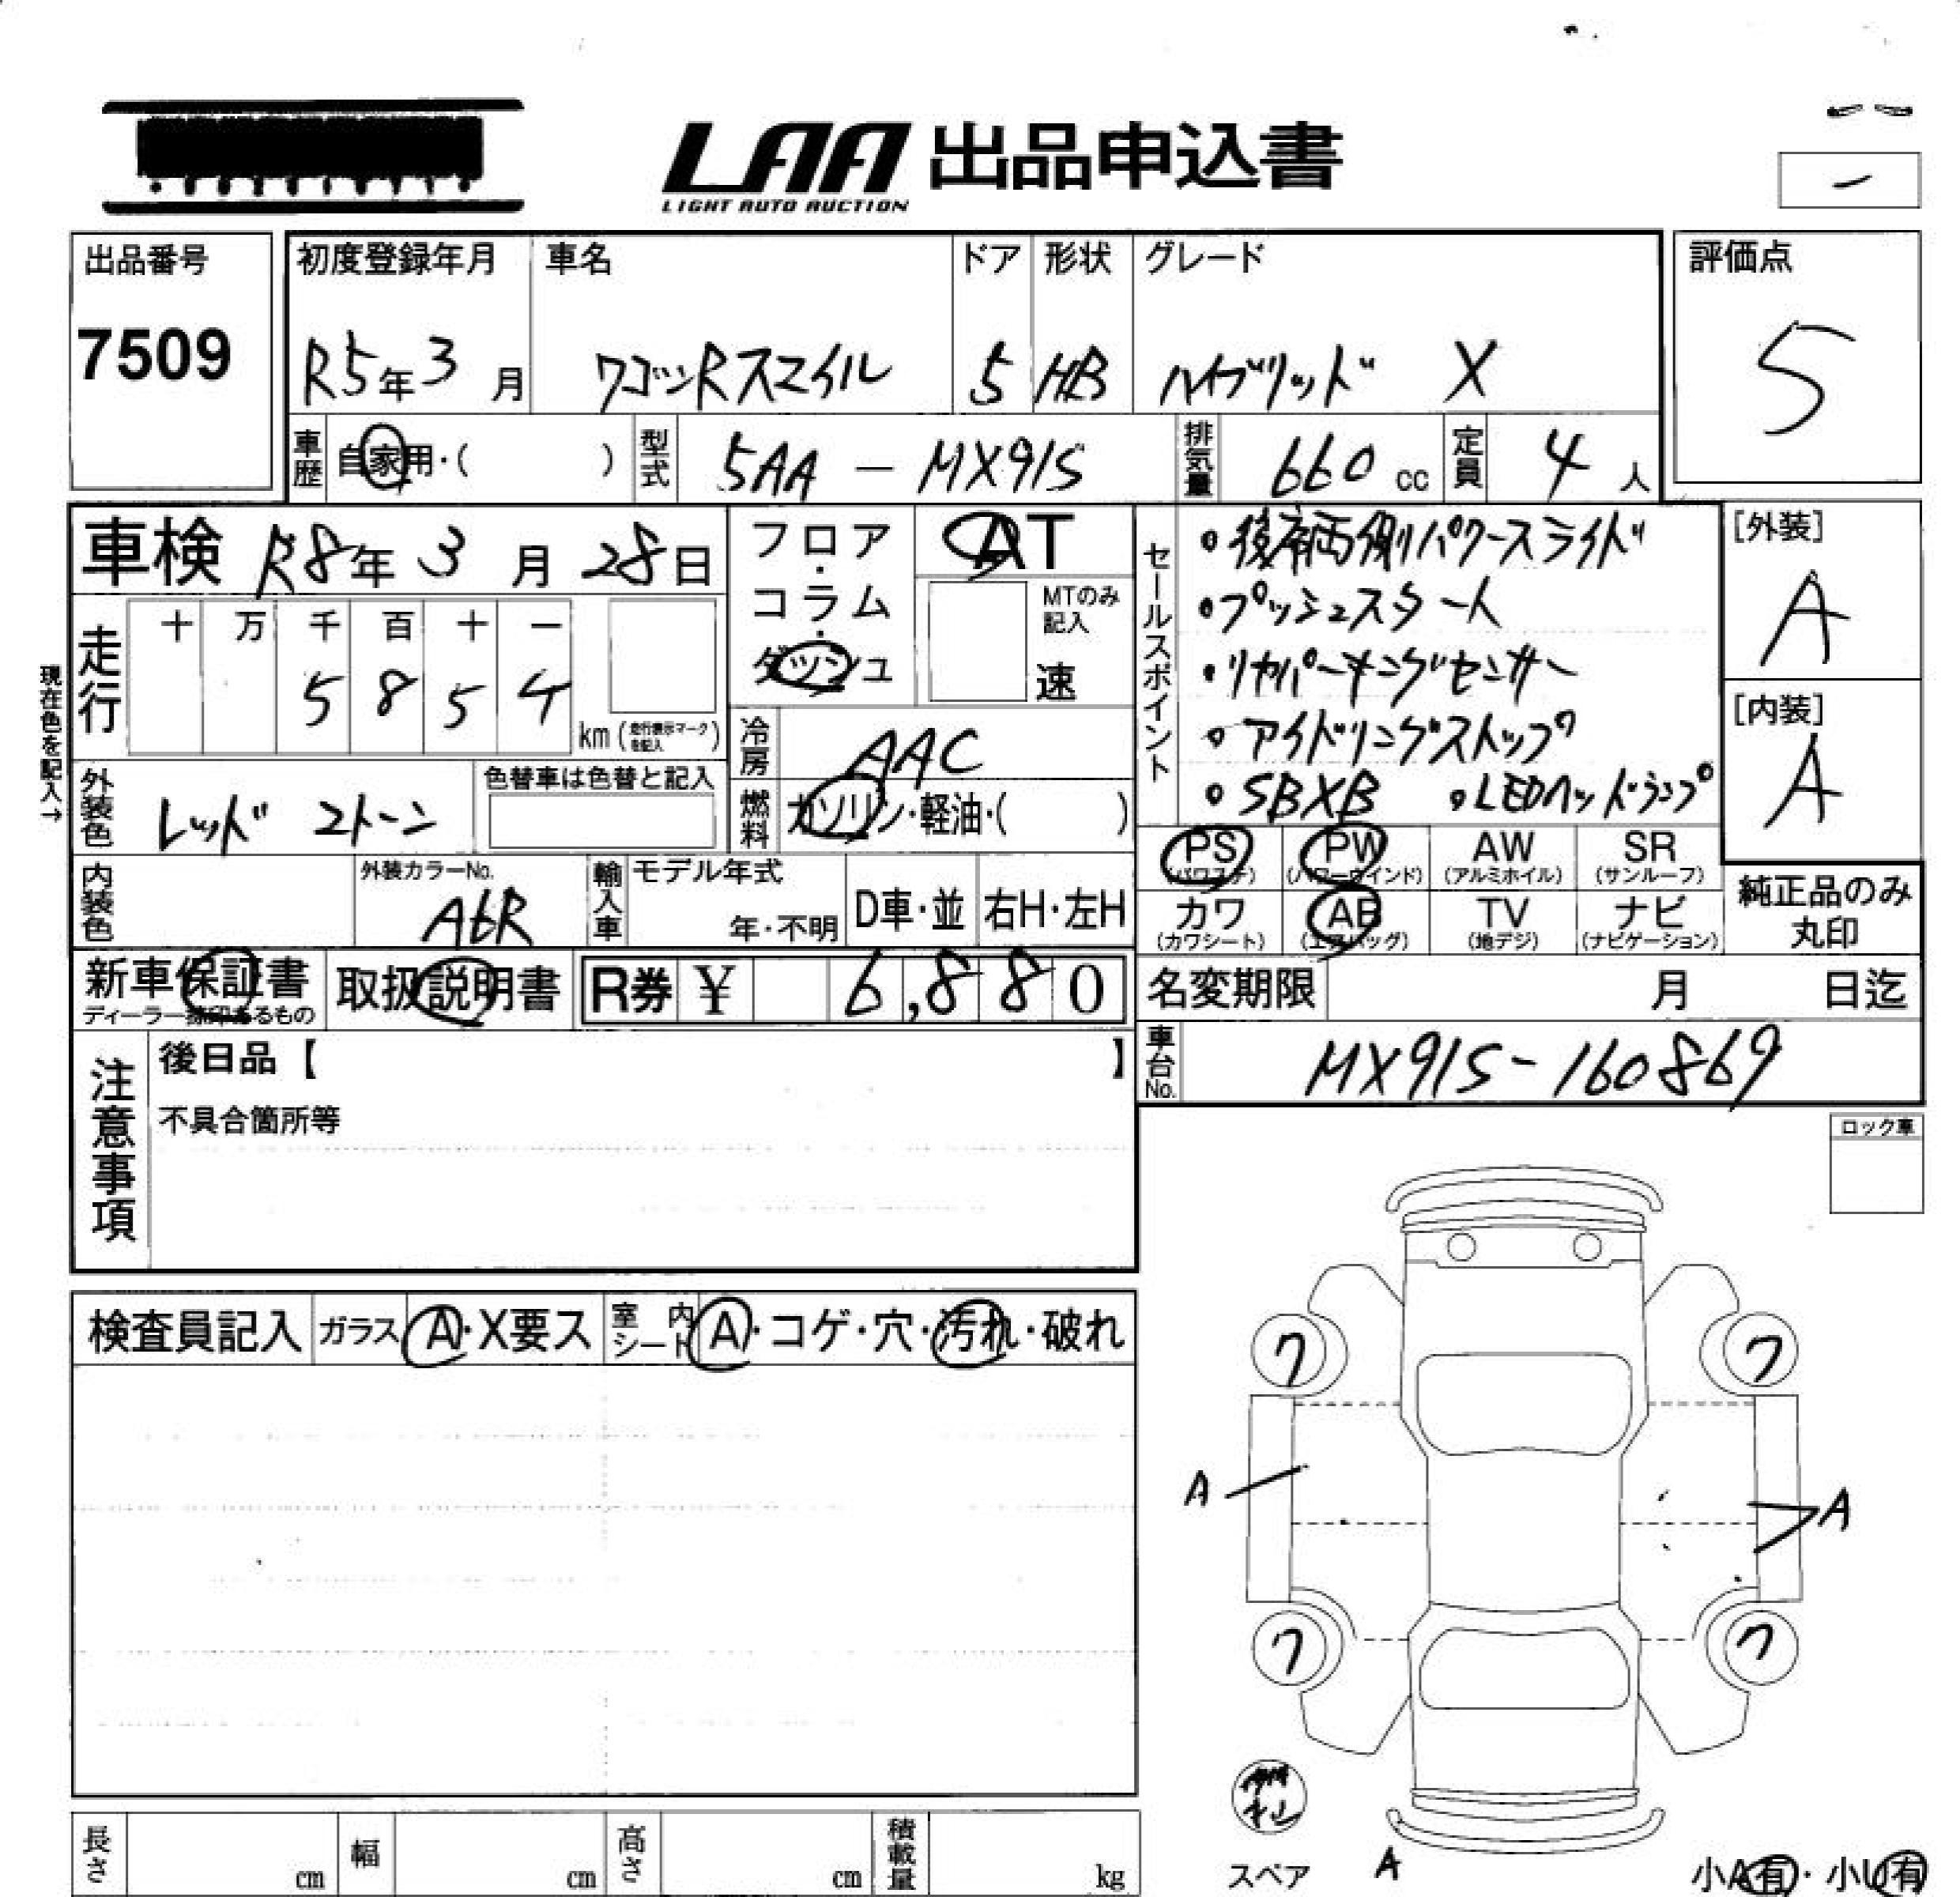 LAA 出品申込書
LIGHT AUTO AUCTION
出品番号
7509
初度登録年月
R5年3月
車名
ワゴンRスマイル
ドア
5
形状
HB
グレード
ハイブリッド X
評価点
5
車歴
自家用・( )
型式
5AA - MX91S
排気量
660 cc
定員
4 人
車検 R8年3月28日
フロア・コラム・ダッシュ
AT
MTのみ記入
速
セールスポイント
・後席両側パワースライド
・プッシュスタート
・リヤパーキングセンサー
・アイドリングストップ
・SBXB ・LEDヘッドランプ
[外装]
A
[内装]
A
現在色を記入→
走行
十 万 千 百 十 一
5 8 5 4
km (走行表示マークを記入)
冷房
AAC
外装色
レッド 2トーン
色替車は色替と記入
燃料
ガソリン・軽油・( )
PS (パワステ)
PW (パワーウインド)
AW (アルミホイル)
SR (サンルーフ)
カワ (カワシート)
AB (エアバッグ)
TV (地デジ)
ナビ (ナビゲーション)
純正品のみ丸印
内装色
外装カラーNo.
A6R
輸入車
モデル年式
年・不明
D車・並
右H・左H
新車保証書
ディーラー捺印あるもの
取扱説明書
R券 ¥ 6,880
名変期限 月 日迄
車台No.
MX91S-160869
注意事項
後日品【 】
不具合箇所等
ロック車
検査員記入
ガラス A・X要ス
室内シート A・コゲ・穴・汚れ・破れ
ワ ワ
A A
ワ ワ
スペア
A
小A有・小U有
長さ cm
幅 cm
高さ cm
積載量 kg